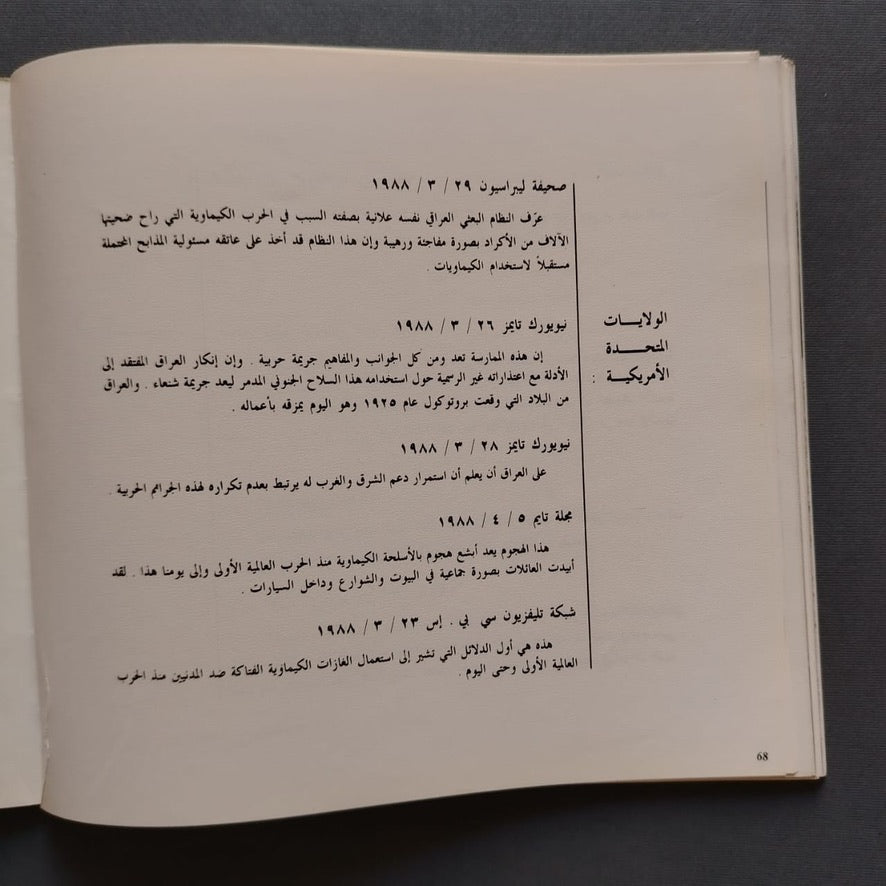 صحيفة ليبراسيون ٢٩ / ٣ / ١٩٨٨
عرّف النظام البعثي العراقي نفسه علانية بصفته السبب في الحرب الكيماوية التي راح ضحيتها
الآلاف من الأكراد بصورة مفاجئة ورهيبة وإن هذا النظام قد أخذ على عاتقه مسئولية المذابح المحتملة
مستقبلاً لاستخدام الكيماويات .
الولايـــات
المتحـــدة
الأمريكية :
نيويورك تايمز ٢٦ / ٣ / ١٩٨٨
إن هذه الممارسة تعد ومن كل الجوانب والمفاهيم جريمة حربية . وإن إنكار العراق المفتقد إلى
الأدلة مع اعتذاراته غير الرسمية حول استخدامه هذا السلاح الجنوني المدمر ليعد جريمة شنعاء . والعراق
من البلاد التي وقعت بروتوكول عام ١٩٢٥ وهو اليوم يمزقه بأعماله .
نيويورك تايمز ٢٨ / ٣ / ١٩٨٨
على العراق أن يعلم أن استمرار دعم الشرق والغرب له يرتبط بعدم تكراره لهذه الجرائم الحربية .
مجلة تايم ٥ / ٤ / ١٩٨٨
هذا الهجوم يعد أبشع هجوم بالأسلحة الكيماوية منذ الحرب العالمية الأولى وإلى يومنا هذا . لقد
أبيدت العائلات بصورة جماعية في البيوت والشوارع وداخل السيارات .
شبكة تليفزيون سي بي . إس ٢٣ / ٣ / ١٩٨٨
هذه هي أول الدلائل التي تشير إلى استعمال الغازات الكيماوية الفتاكة ضد المدنيين منذ الحرب
العالمية الأولى وحتى اليوم .
68